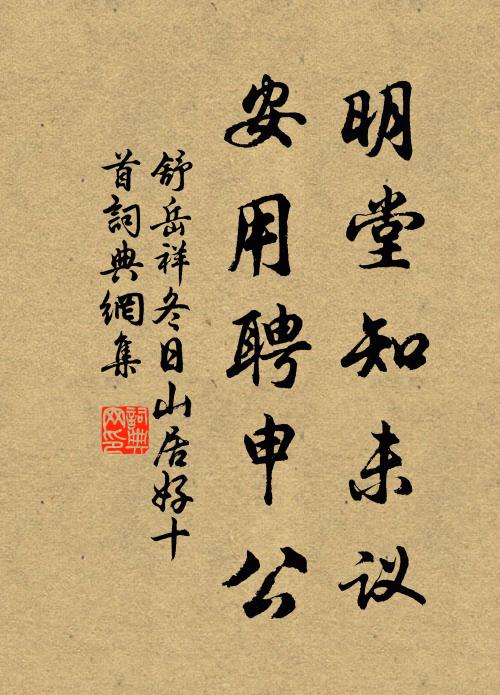 明堂知未议
安用聘申公
舒岳祥冬日山居好十
首詞典網集
詞典网印